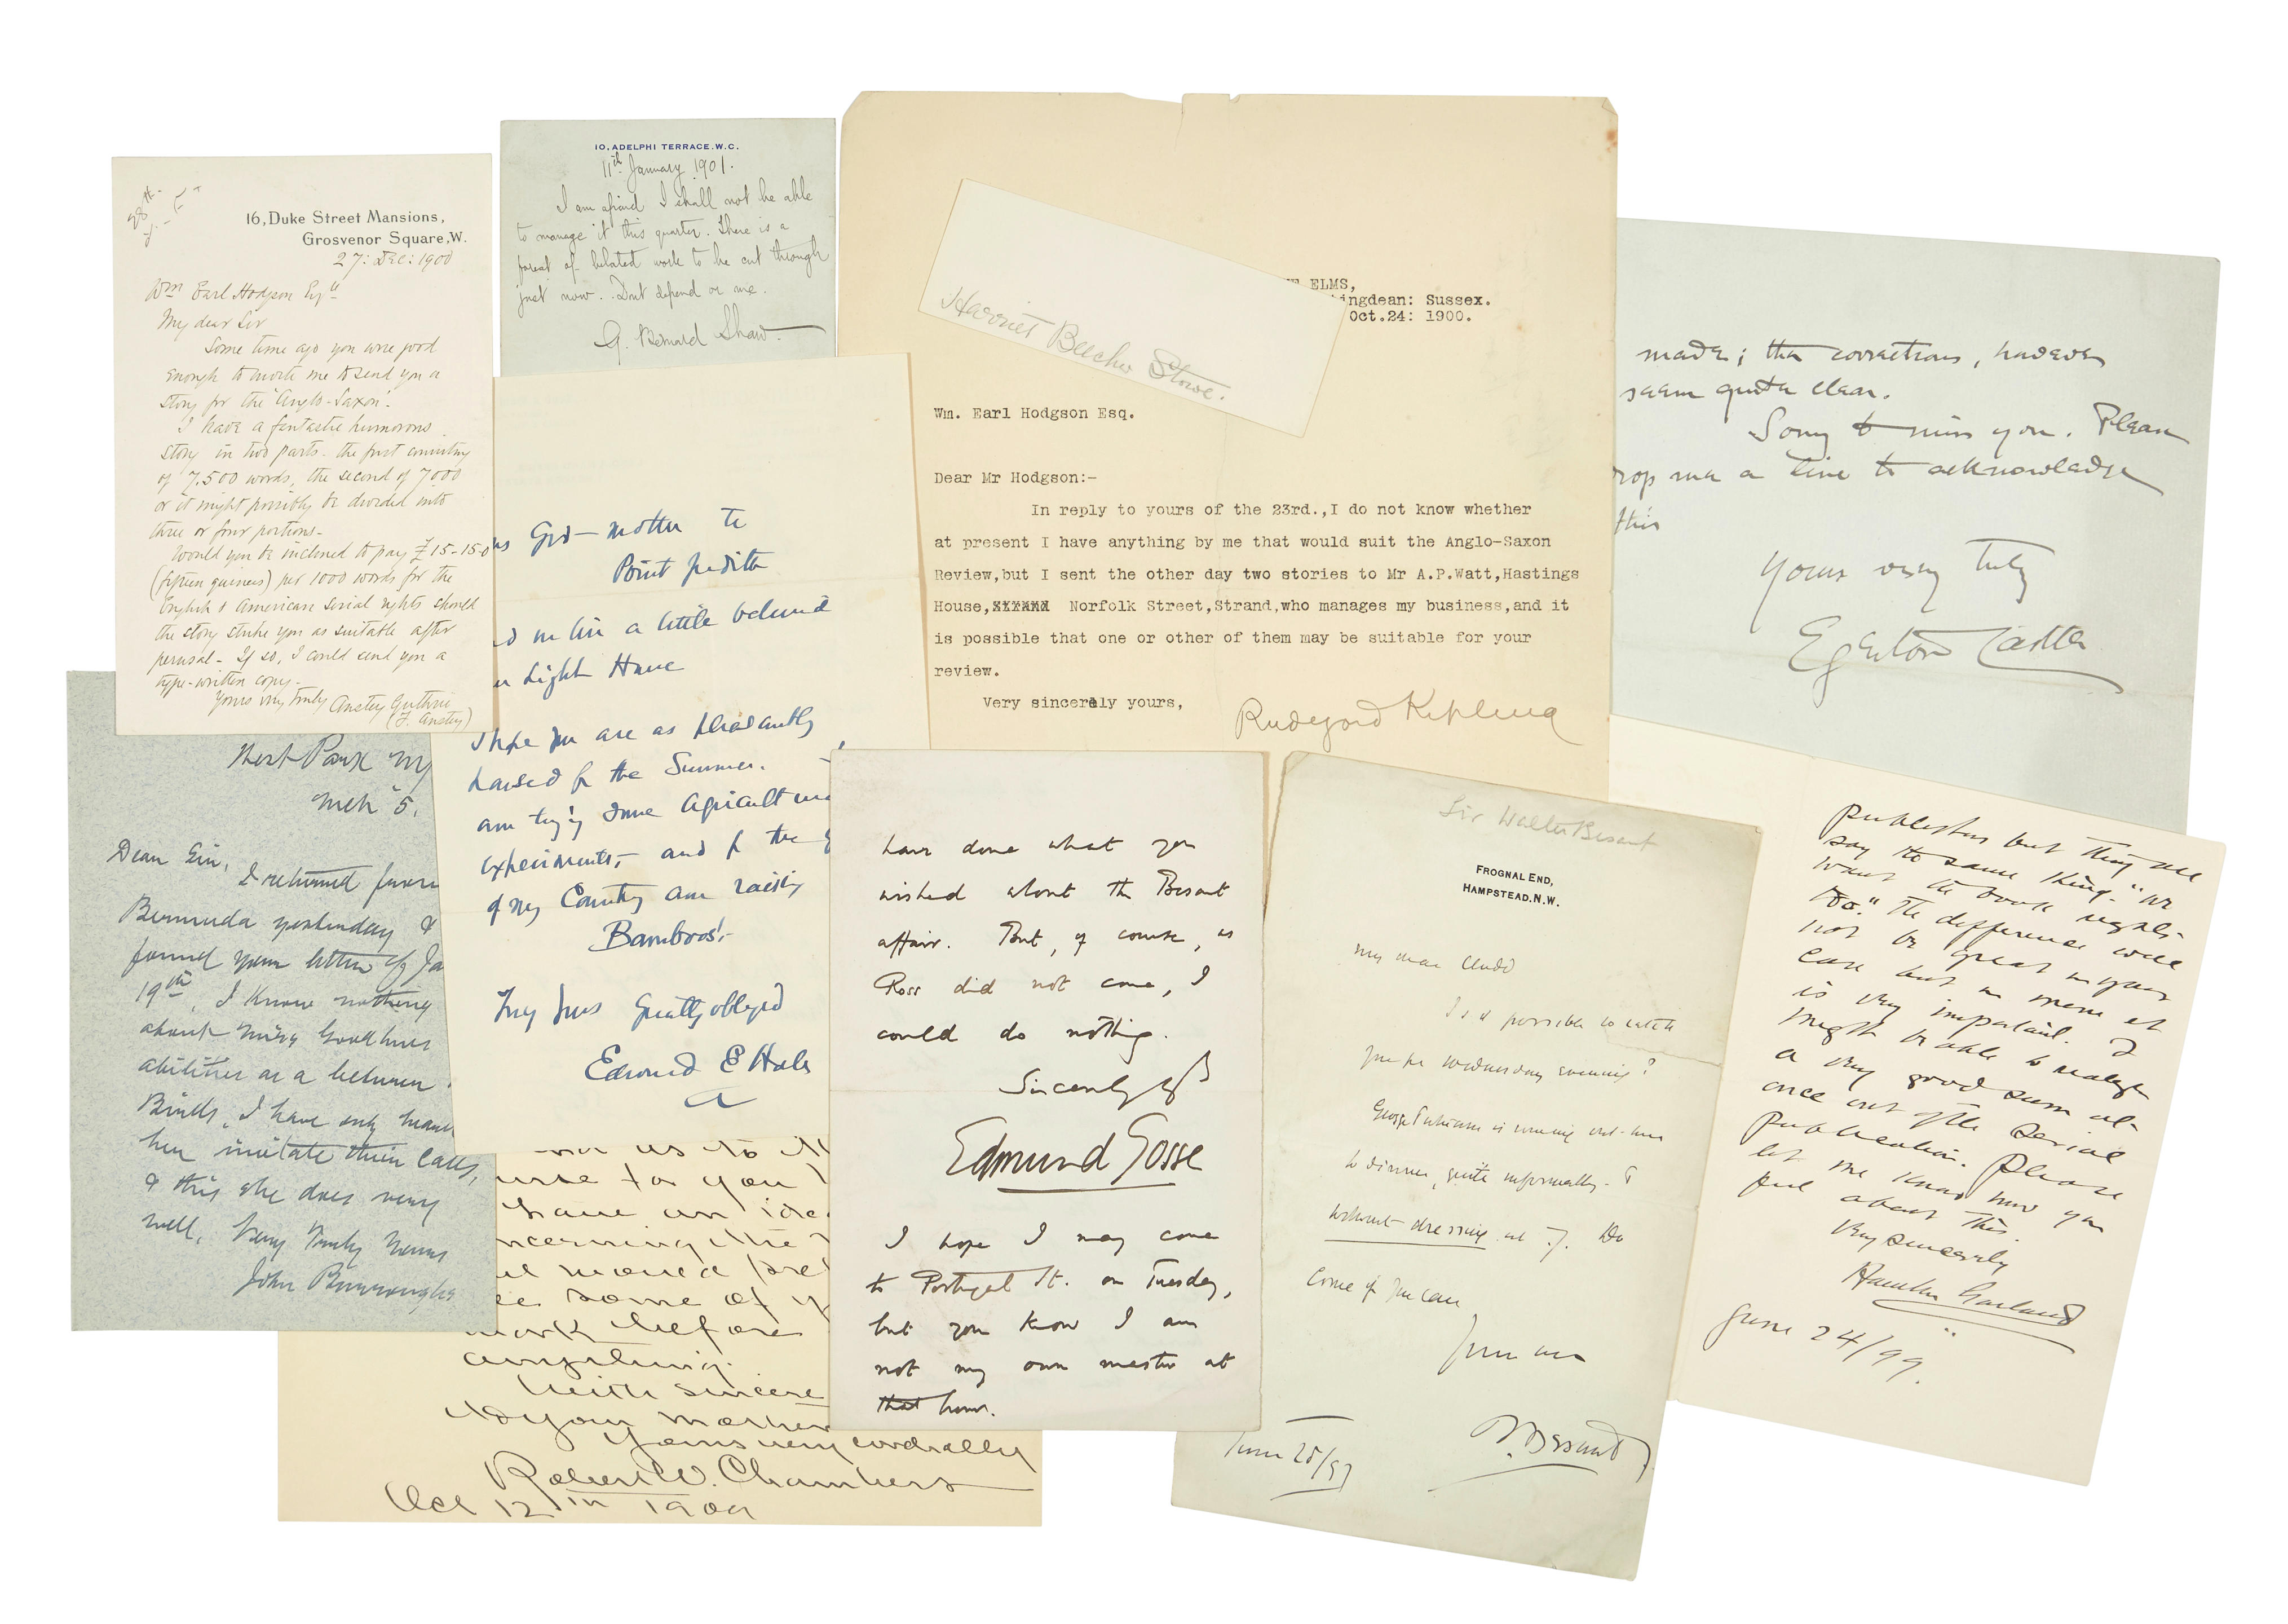 16, Duke Street Mansions,
Grosvenor Square, W.
27: Dec: 1900
Wm Earl Hodgson Esqre
My dear Sir
Some time ago you were good
enough to invite me to send you a
story for the 'Anglo-Saxon'.
I have a fantastic humorous
story in two parts - the first consisting
of 7,500 words, the second of 7000
or it might possibly be divided into
three or four portions -
Would you be inclined to pay £15-15-0
(fifteen guineas) per 1000 words for the
English & American serial rights should
the story strike you as suitable after
perusal - If so, I could send you a
type-written copy -
Yours very truly Anstey Guthrie
(F. Anstey)
10, ADELPHI TERRACE. W.C.
11th January 1901.
I am afraid I shall not be able
to manage it this quarter. There is a
forest of belated work to be cut through
just now. Dont depend on me.
G. Bernard Shaw.
Harriet Beecher Stowe.
ELMS,
ingdean: Sussex.
Oct.24: 1900.
Wm. Earl Hodgson Esq.
Dear Mr Hodgson:-
In reply to yours of the 23rd.,I do not know whether
at present I have anything by me that would suit the Anglo-Saxon
Review,but I sent the other day two stories to Mr A.P.Watt,Hastings
House, Norfolk Street,Strand,who manages my business,and it
is possible that one or other of them may be suitable for your
review.
Very sincerely yours,
Rudyard Kipling
made; the corrections, however
seem quite clear.
Sorry to miss you. Please
rop me a line to acknowledge
this
Yours very truly
Egerton Castle
God-mother to
Point Judith
live a little behind
Light House
I hope you are as pleasantly
housed for the Summer.
am trying some Agricultu
experiments,- and for the
of my Country am raising
Bamboos!-
Truly yours Greatly obliged
Edward E Hale
West Park N Y
Mch 5.
Dear Sir,
I returned from
Bermuda yesterday &
found your letter of Ja
19th. I know nothing
about Miss
abilities as a
Birds. I have only heard
her imitate their calls,
& this she does very
well. Very Truly Yours
John Burroughs
you
have an idea
ncerning the
some of y
work before
anything.
With sincere
to your mother
Yours very cordially
Robert W. Chambers
Oct 12th 1909
have done what you
wished about the Besant
affair. But, of course, as
Ross did not come, I
could do nothing.
Sincerely yrs
Edmund Gosse
I hope I may come
to Portugal St. on Tuesday,
but you know I am
not my own master at
that hour.
Sir Walter Besant
FROGNAL END,
HAMPSTEAD. N.W.
My dear Clodd
Is it possible to catch
you for Wednesday evening?
George Putnam is coming out here
to dinner, quite informally - &
without dressing at 7. Do
come if you can
W. Besant
June 25/97
publishers but they all
say the same thing. "We
want the book rights
too." The difference will
not be great in your
case but in mine it
is very important. I
might be able to realize
a very good sum at
once out of the serial
publication. Please
let me know how you
feel about this.
Very sincerely
Hamlin Garland
June 24/99.